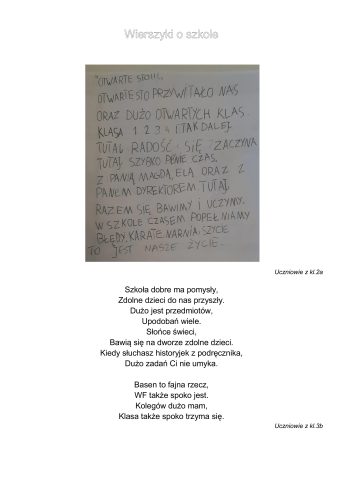 Wierszyki o szkole
"OTWARTE
OTWARTE STO PRZYWITAŁO NAS
ORAZ DUŻO OTWARTYCH KLAS.
KLASA 1 2 3 4 I TAK DALEJ
TUTAJ RADOŚĆ SIĘ ZACZYNA
TUTAJ SZYBKO PŁYNIE CZAS,
Z PANIĄ MAGDĄ, ELĄ ORAZ Z
PANEM DYREKTOREM TUTAJ
RAZEM SIĘ BAWIMY I UCZYMY.
W SZKOLE CZASEM POPEŁNIAMY
BŁĘDY, KARATE NARNIA, SZYCIE
TO JEST NASZE ŻYCIE.
Uczniowie z kl.2a
Szkoła dobre ma pomysły,
Zdolne dzieci do nas przyszły.
Dużo jest przedmiotów,
Upodobań wiele.
Słońce świeci,
Bawią się na dworze zdolne dzieci.
Kiedy słuchasz historyjek z podręcznika,
Dużo zadań Ci nie umyka.
Basen to fajna rzecz,
WF także spoko jest.
Kolegów dużo mam,
Klasa także spoko trzyma się.
Uczniowie z kl.3b